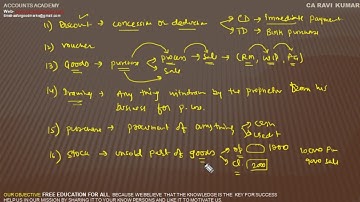 ACCOUNTS ACADEMY
CA RAVI KUMAR
11) Discount → concession or deduction → CD → Immediate payment
→ TD → Bulk purchase
12) Voucher
13) Goods → purchase → process → sale → (RM, WIP, FG)
→ sale
14) Drawing → Any thing withdrawn by the proprietor from his
business for p. use.
15) purchase → procurement of anything → cash
→ credit
16) Stock → unsold part of goods → op 1000
→ cl 2000
OUR OBJECTIVE FREE EDUCATION FOR ALL, BECAUSE WE BELIEVE THAT THE KNOWLEDGE IS THE KEY FOR SUCCESS
HELP US IN OUR MISSION BY SHARING IT TO YOUR KNOW PERSONS AND LIKE IT TO MOTIVATE US